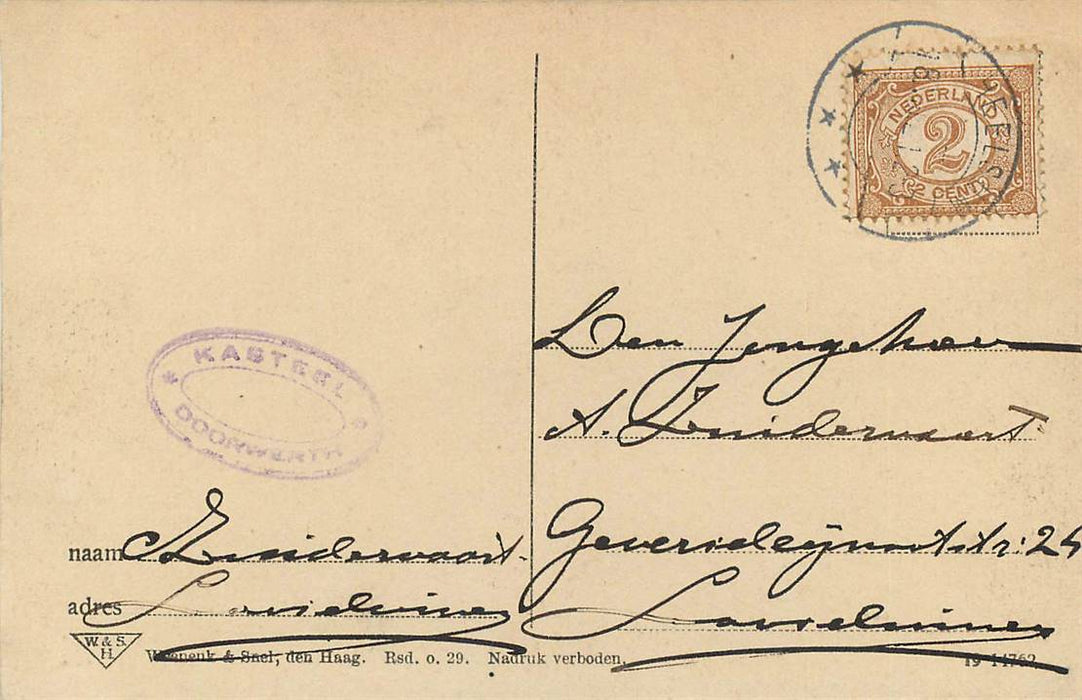 NEDERLAND
2
2 CENT
KASTEEL
DOORWERTH
Den Jongeheer
A. Zuidervaart
Geversdeijnootstr. 24
Loosduinen
naam Zuidervaart
adres Loosduinen
W. & S.
H.
Weenenk & Snel, den Haag. Rsd. o. 29. Nadruk verboden. 19-14762